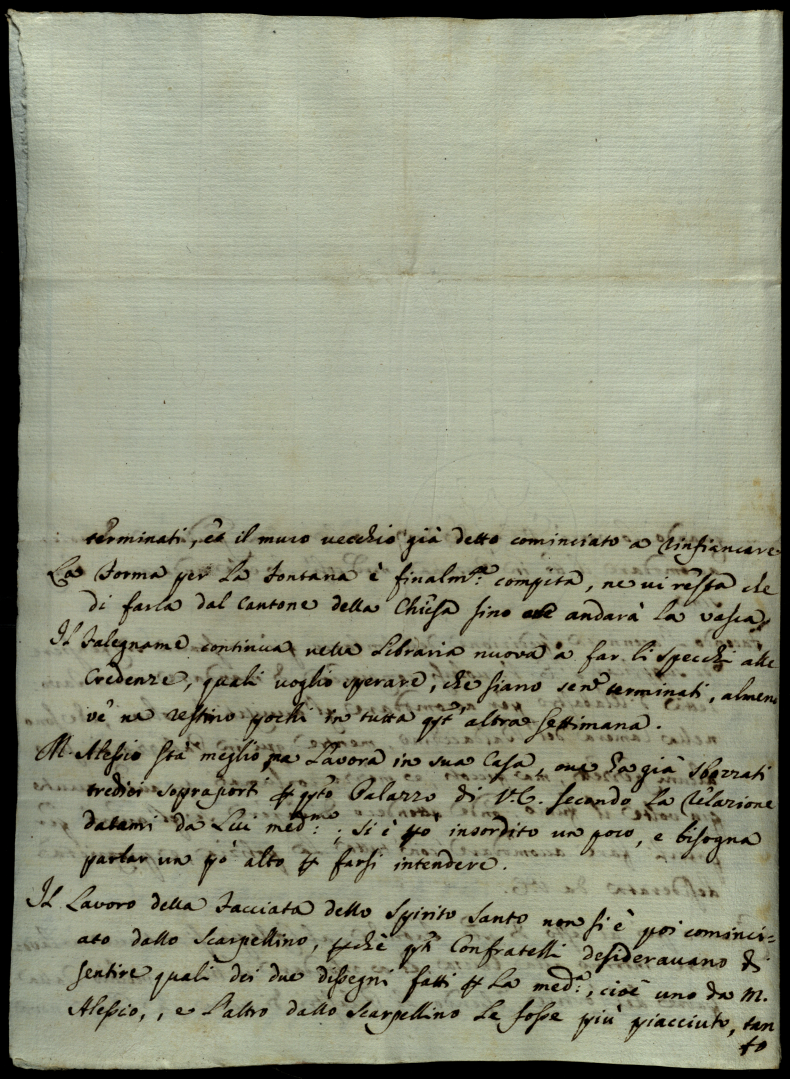 terminati, et il muro vecchio già detto cominciato a rinfiancare
La Forma per La Fontana è finalm.te compita, ne vi resta che
di farla dal Cantone della Chiesa sino ove andarà La vasca.
Il Falegname continua nella Libraria nuova a far li specchi alle
Credenze, quali voglio sperare, che siano term terminati, almeno
ve ne restino pochi in tutta q.ta altra settimana.
M. Alessio stà meglio, ma Lavora in sua Casa, ove hà già sbozzati
tredici sopraporti p q.to Palazzo di V.E. secondo La relazione
datami da Lui med.mo; si è po insordito un poco, e bisogna
parlar un pò alto p farsi intendere.
Il Lavoro della Facciata dello Spirito Santo non si è poi cominci=
ato dallo Scarpellino, p.chè q.ti Confratelli desideravano di
sentire quali dei due dissegni fatti p La med.a, cioè uno da M.
Alessio, , e l'altro dallo Scarpellino Le fosse più piacciuto, tan
to